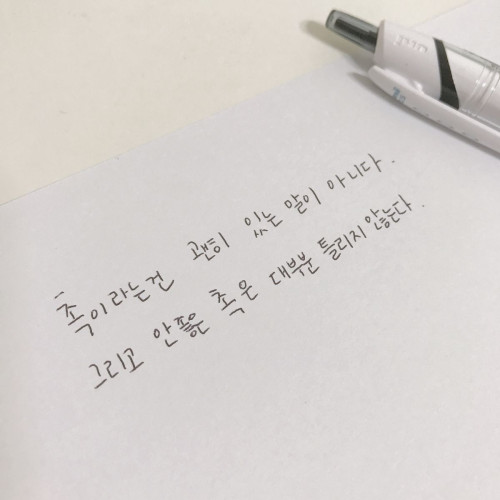 촉이라는건 괜히 있는 말이 아니다.
그리고 안좋은 촉은 대부분 틀리지 않는다.